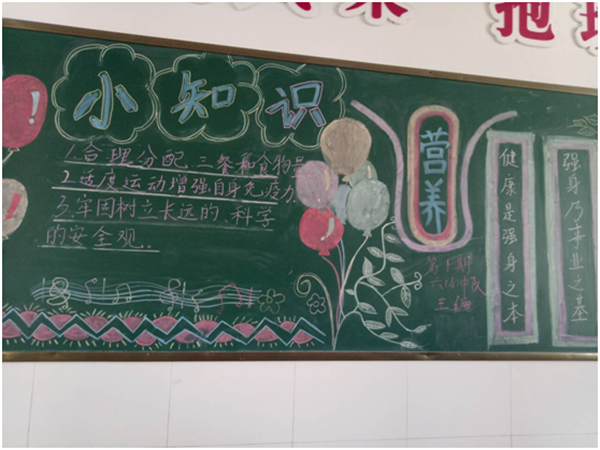 小知识
1.合理分配.三餐和食物量
2.适度运动增强自身免疫力
3.牢固树立长远的.科学
的安全观.
营养
第下期
六(4)中队
主编
健康是强身之本
强身乃事业之基